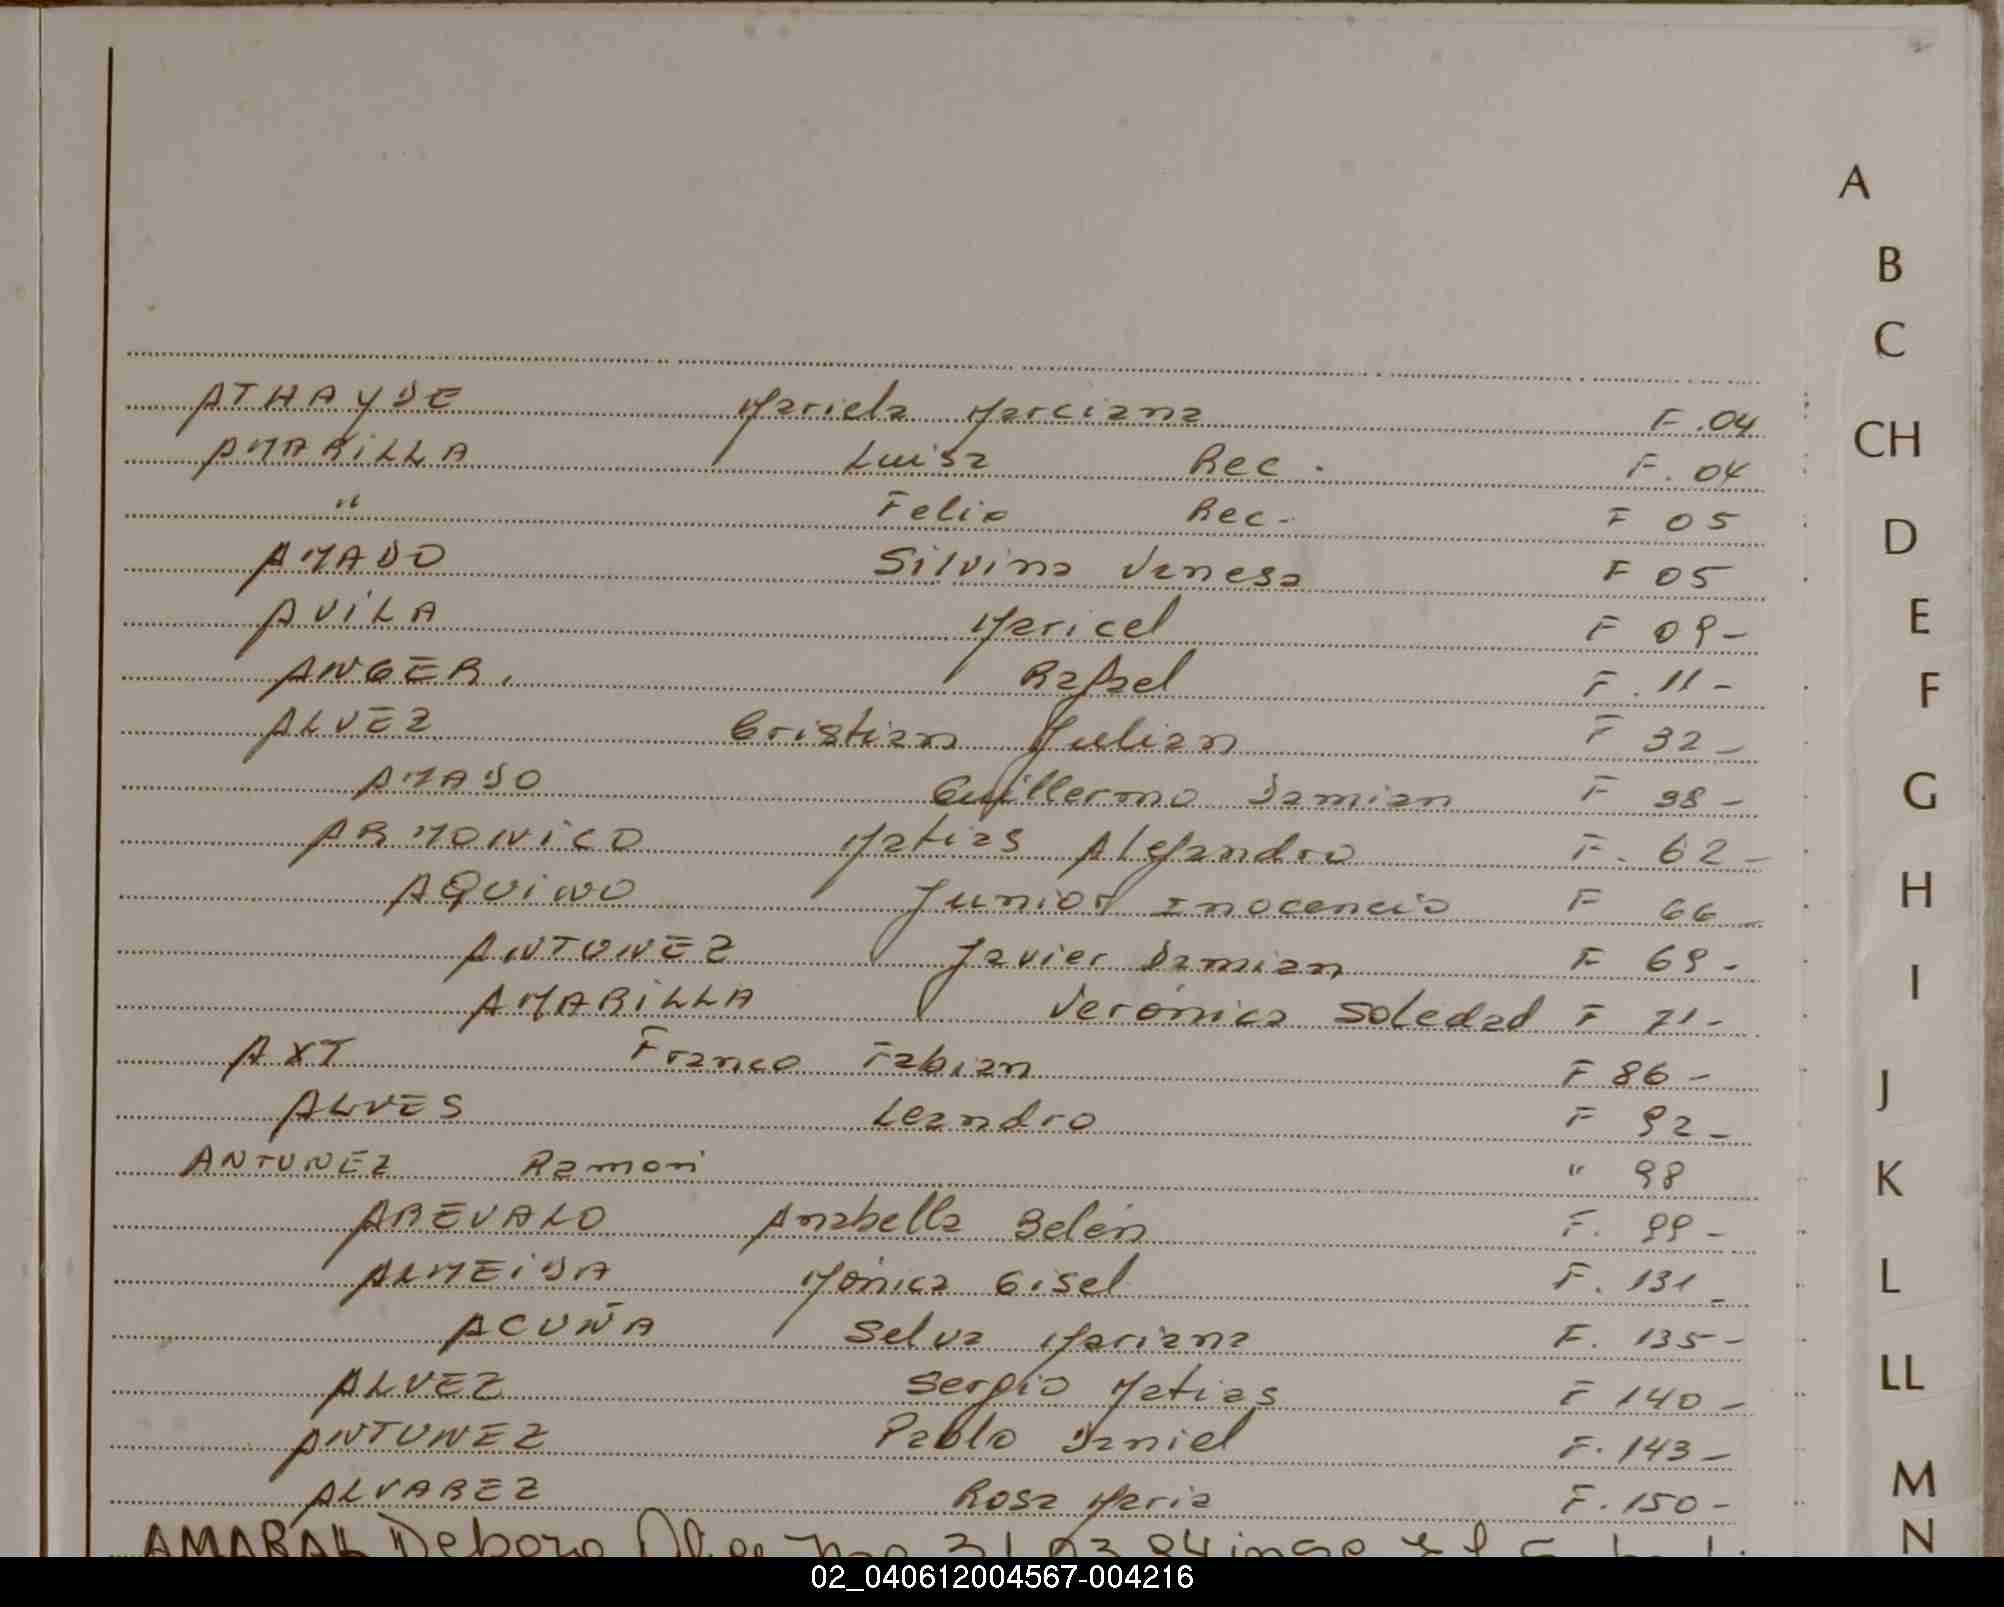 A
B
C
CH
D
E
F
G
H
I
J
K
L
LL
M
N
ATHAYDE Mariela Marciana F. 04
AMARiLLA Luisa Rec. F. 04
" Felix Rec. F 05
AMADO Silvina Vanesa F 05
AViLA Maricel F 09-
ANGER. Rafael F. 11-
ALVEZ Cristian Julian F 32-
AMADO Guillermo Damian F 38-
ARMONiCO Matias Alejandro F. 62-
AQUiNO Junior Inocencio F 66-
ANTUNEZ Javier Damian F 69-
AMARiLLA Verónica Soledad F 71-
AXT Franco Fabian F 86-
ALVES Leandro F 92-
ANTUNEZ Ramón " 98
AREVALO Anabella Belén F. 99-
ALMEiDA Mónica Gisel F. 131-
ACUÑA Selva Mariana F. 135-
ALVEZ Sergio Matias F 140-
ANTUNEZ Pablo Daniel F. 143-
ALVAREZ Rosa Maria F. 150-
AMARAL Debora
02_040612004567-004216